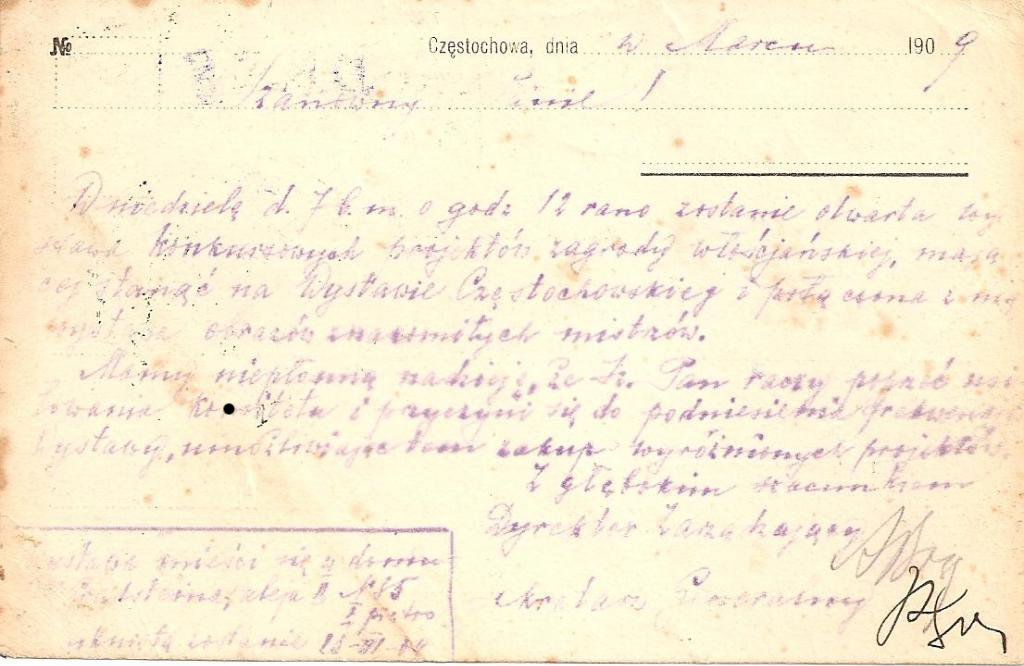 № Częstochowa, dnia w Marcu 1909
Szanowny Panie!
W niedzielę d. 7 b. m. o godz 12 rano zostanie otwarta wy
stawa konkursowych projektów zagrody włościańskiej, mają
cej stanąć na Wystawie Częstochowskiej i połączona z nią
wystawa obrazów znakomitych mistrzów.
Mamy niepłonną nadzieję, że Sz. Pan raczy poprzeć usi
łowania Komitetu i przyczyni się do podniesienia frekwencji
Wystawy, umożliwiając tem zakup wyróżnionych projektów.
Z głębokim szacunkiem
Dyrektor Zarządzający
Sekretarz Generalny
Wystawa mieści się w domu
aleja II № 35
I piętro
zostanie 15-III-09